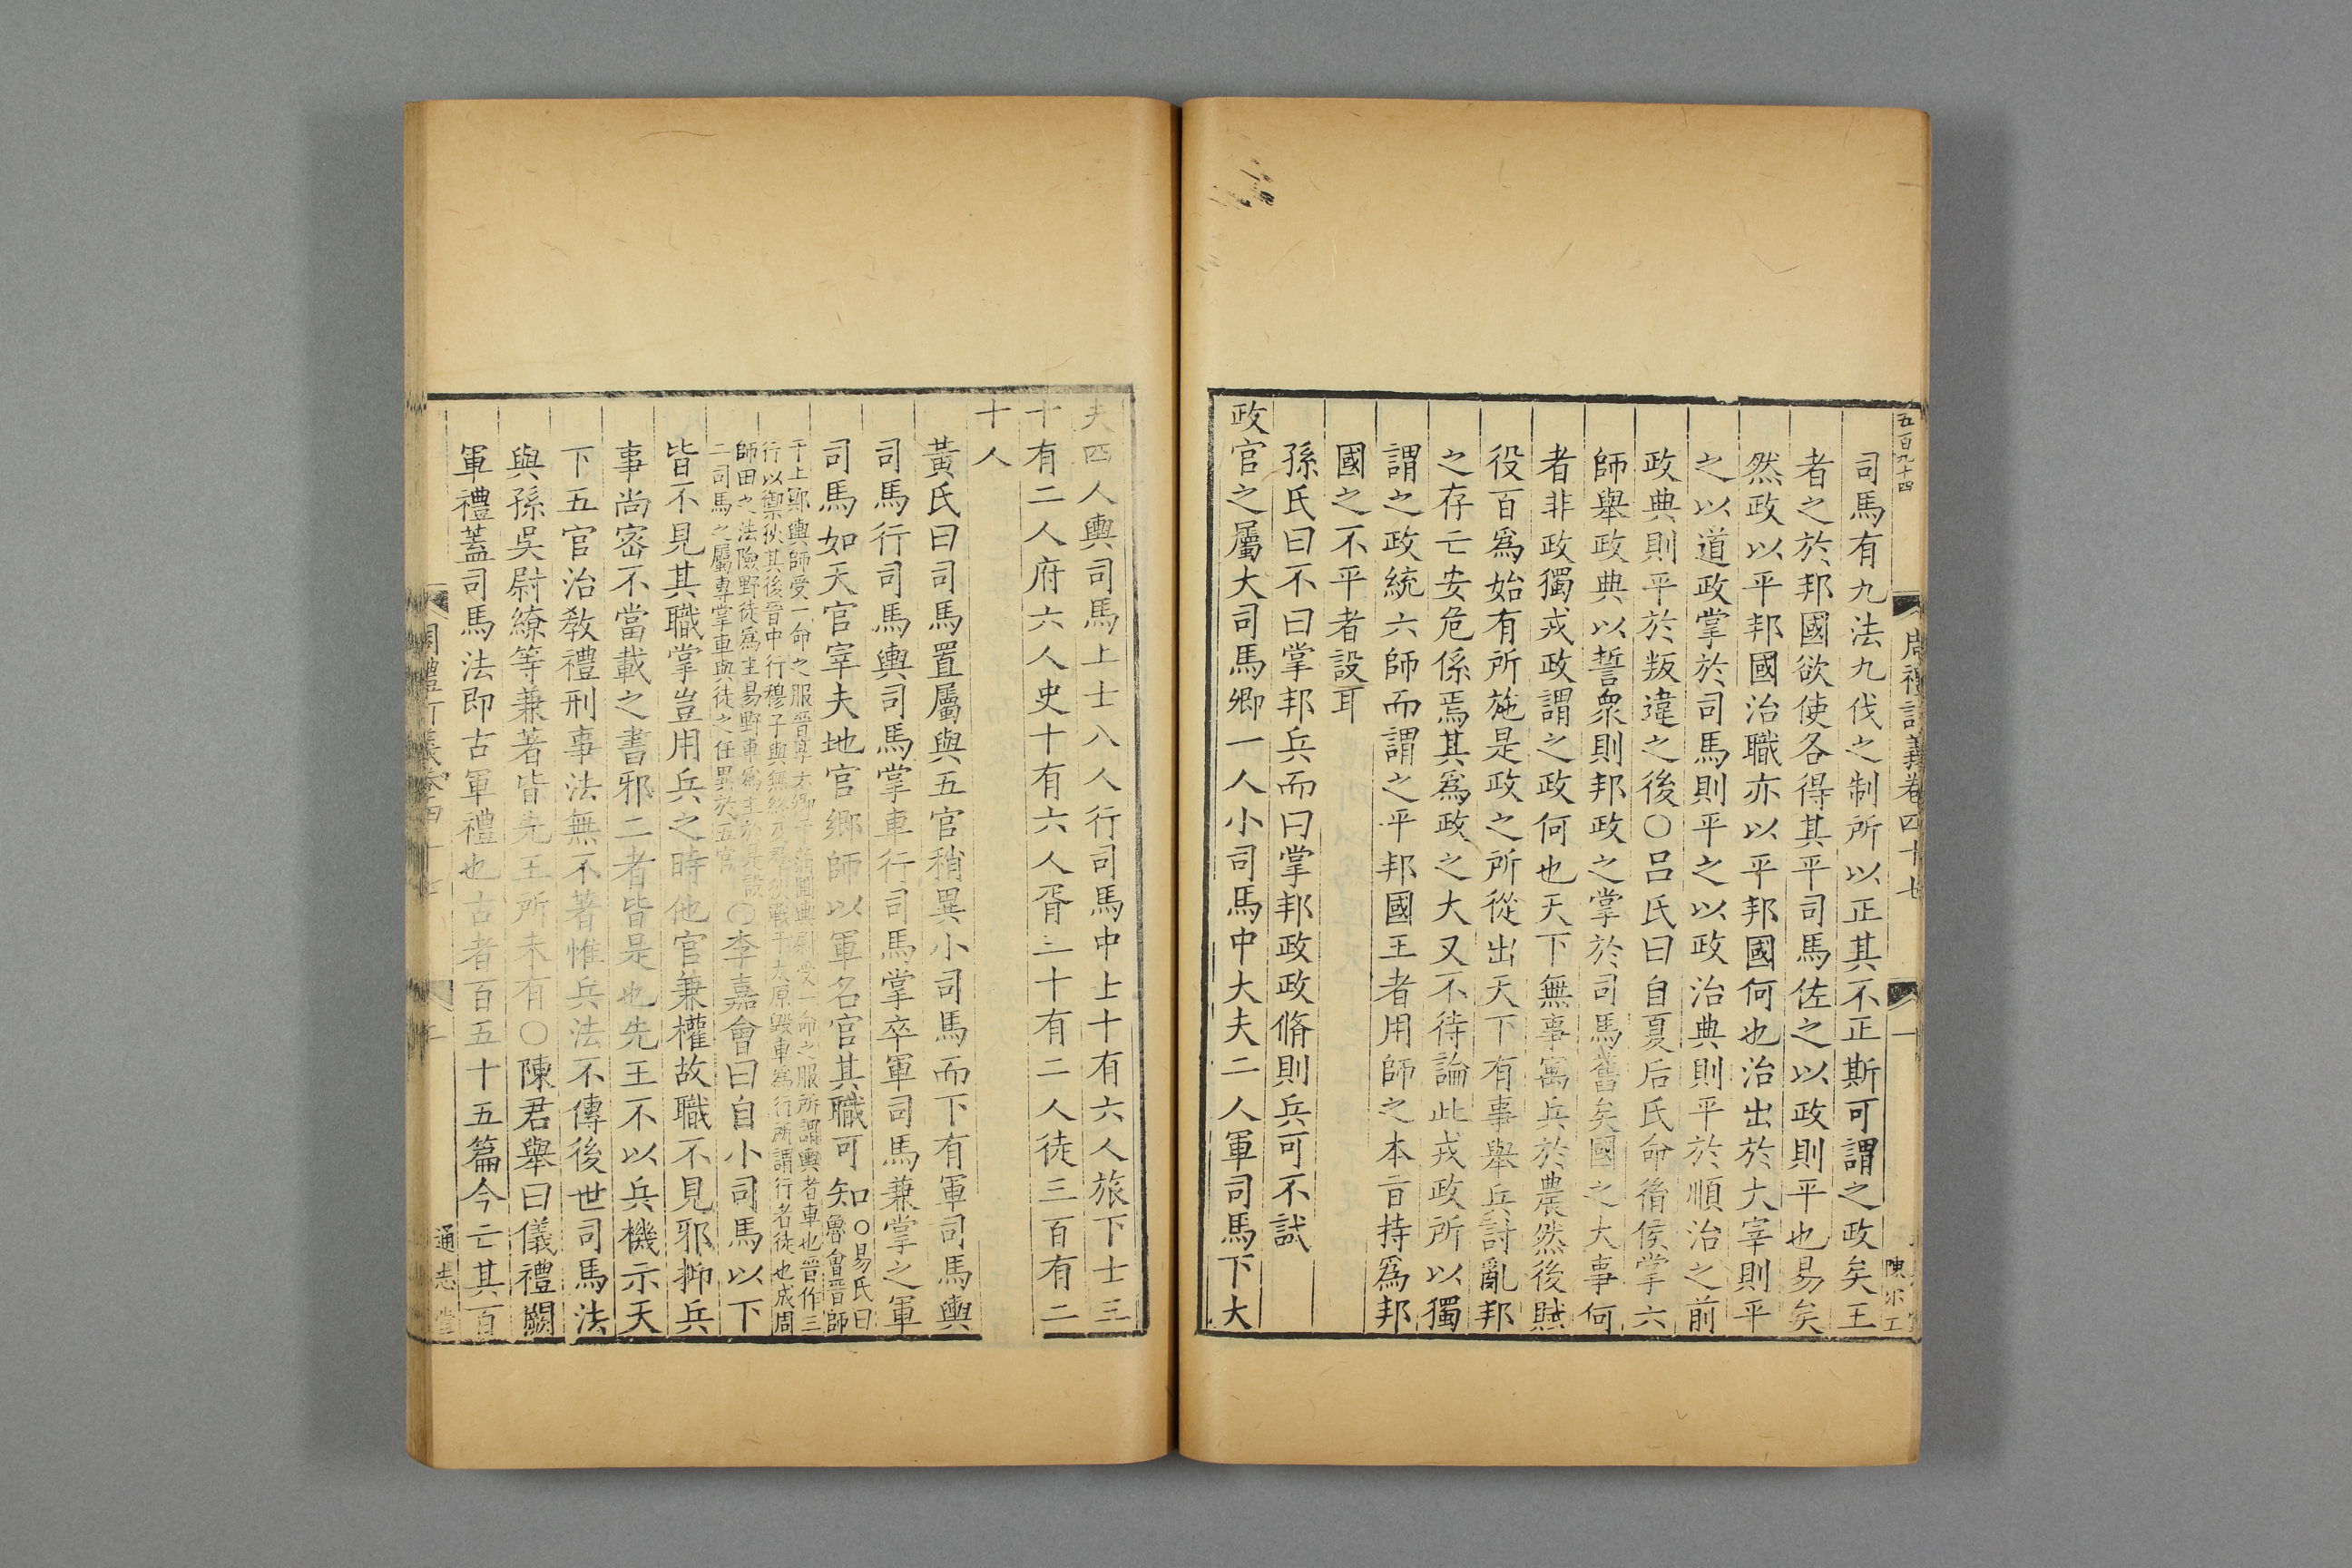 五百九十四
周禮訂義卷四十七
一
司馬有九法九伐之制所以正其不正斯可謂之政矣王
者之於邦國欲使各得其平司馬佐之以政則平也易矣
然政以平邦國治職亦以平邦國何也治出於大宰則平
之以道政掌於司馬則平之以政治典則平於順治之前
政典則平於叛違之後○呂氏曰自夏后氏命㣧侯掌六
師舉政典以誓衆則邦政之掌於司馬舊矣國之大事何
者非政獨戎政謂之政何也天下無事寓兵於農然後賦
役百爲始有所施是政之所從出天下有事舉兵討亂邦
之存亡安危係焉其爲政之大又不待論此戎政所以獨
謂之政統六師而謂之平邦國王者用師之本音持爲邦
國之不平者設耳
孫氏曰不曰掌邦兵而曰掌邦政政脩則兵可不試
政官之屬大司馬卿一人小司馬中大夫二人軍司馬下大
夫四人輿司馬上士八人行司馬中士十有六人旅下士三
十有二人府六人史十有六人胥三十有二人徒三百有二
十人
黃氏曰司馬置屬與五官稍異小司馬而下有軍司馬輿
司馬行司馬輿司馬掌車行司馬掌卒軍司馬兼掌之軍
司馬如天官宰夫地官鄉師以軍名官其職可知○易氏曰魯會晉師
于上鄍輿師受一命之服晉享六卿于蒲圃輿尉受一命之服所謂輿者車也晉作三
行以禦狄其後晉中行穆子與無終及羣狄戰于大原毀車爲行所謂行者徒也成周
師田之法險野徒爲主易野車爲主於是設
二司馬之屬專掌車與徒之任異於五官○李嘉會曰自小司馬以下
皆不見其職掌豈用兵之時他官兼權故職不見邪抑兵
事尚密不當載之書邪二者皆是也先王不以兵機示天
下五官治敎禮刑事法無不著惟兵法不傳後世司馬法
與孫吳尉繚等兼著皆先王所未有○陳君舉曰儀禮闕
軍禮蓋司馬法即古軍禮也古者百五十五篇今亡其百
通志堂